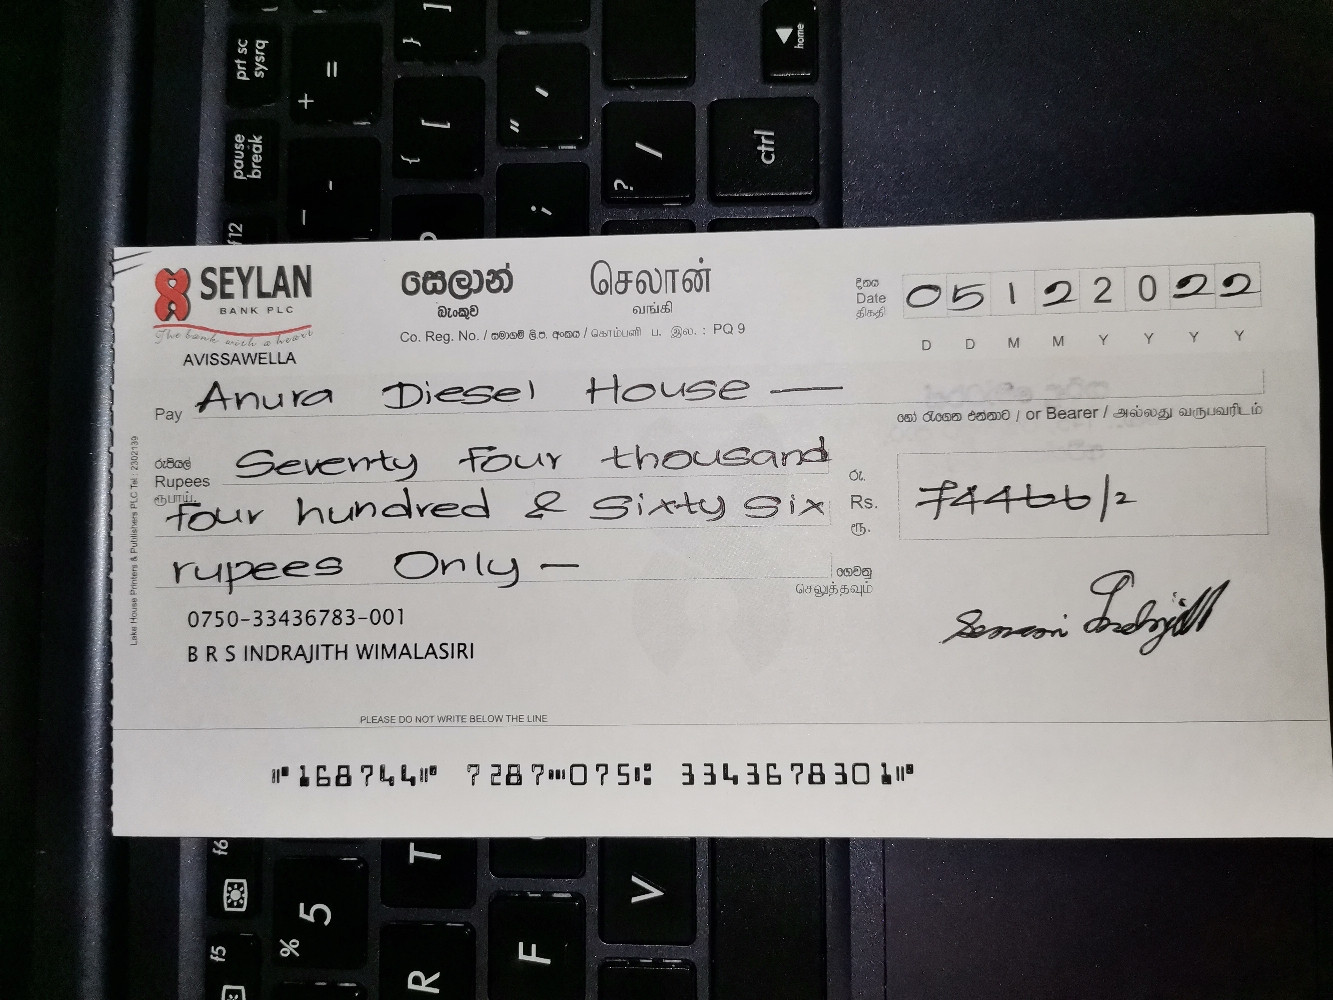 SEYLAN
BANK PLC
The bank with a heart
AVISSAWELLA
සෙලාන්
බැංකුව
செலான்
வங்கி
Co. Reg. No. / සමාගම් ලි.ප. අංකය / கொம்பனி ப. இல. : PQ 9
දිනය
Date
திகதி
05122022
D D M M Y Y Y Y
Pay Anura Diesel House —
හෝ රැගෙන එන්නාට / or Bearer / அல்லது வருபவரிடம்
රුපියල්
Rupees
ரூபாய்.
Seventy four thousand
four hundred & Sixty Six
rupees Only —
රු.
Rs.
ரூ.
74466/=
ගෙවනු
செலுத்தவும்
0750-33436783-001
B R S INDRAJITH WIMALASIRI
Lake House Printers & Publishers PLC Tel : 2302139
PLEASE DO NOT WRITE BELOW THE LINE
⑈168744⑈ 7287⑉075⑆ 3343678301⑈
prt sc
sysrq
pause
break
f12
+ =
_ -
{ [
} ]
" '
; 
? /
ctrl
home
f6
f5
% 5
T
R
F
V